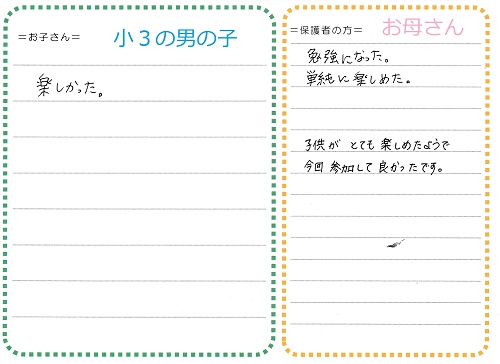 =お子さん= 小3の男の子
楽しかった。
=保護者の方= お母さん
勉強になった。
単純に楽しめた。
子供が とても 楽しめたようで
今回 参加して 良かったです。